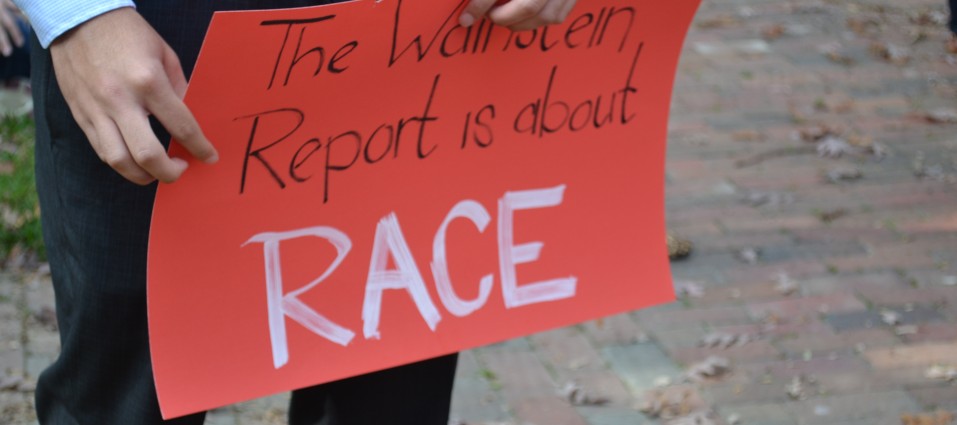 The Wainstein
Report is about
RACE